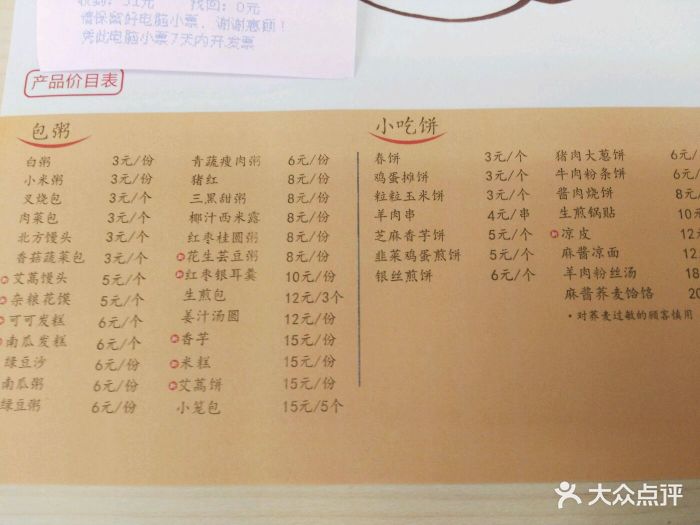 收到: 51元 找回: 0元
请保留好电脑小票, 谢谢惠顾!
凭此电脑小票7天内开发票
产品价目表
包粥
白粥 3元/份
小米粥 3元/份
叉烧包 3元/个
肉菜包 3元/个
北方馒头 3元/个
香菇蔬菜包 3元/个
艾蒿馒头 5元/个
杂粮花馍 5元/个
可可发糕 6元/个
南瓜发糕 6元/个
绿豆沙 6元/份
南瓜粥 6元/份
绿豆粥 6元/份
青蔬瘦肉粥 6元/份
猪红 8元/份
三黑甜粥 8元/份
椰汁西米露 8元/份
红枣桂圆粥 8元/份
花生芸豆粥 8元/份
红枣银耳羹 10元/份
生煎包 12元/3个
姜汁汤圆 12元/份
香芋 15元/份
米糕 15元/份
艾蒿饼 15元/份
小笼包 15元/5个
小吃饼
春饼 3元/个
鸡蛋摊饼 3元/个
粒粒玉米饼 3元/个
羊肉串 4元/串
芝麻香芋饼 5元/个
韭菜鸡蛋煎饼 5元/个
银丝煎饼 6元/个
猪肉大葱饼 6元/
牛肉粉条饼 6元/
酱肉烧饼 8元/
生煎锅贴 10元
凉皮 12
麻酱凉面 12
羊肉粉丝汤 18
麻酱荞麦饸饹 20
•对荞麦过敏的顾客慎用
大众点评